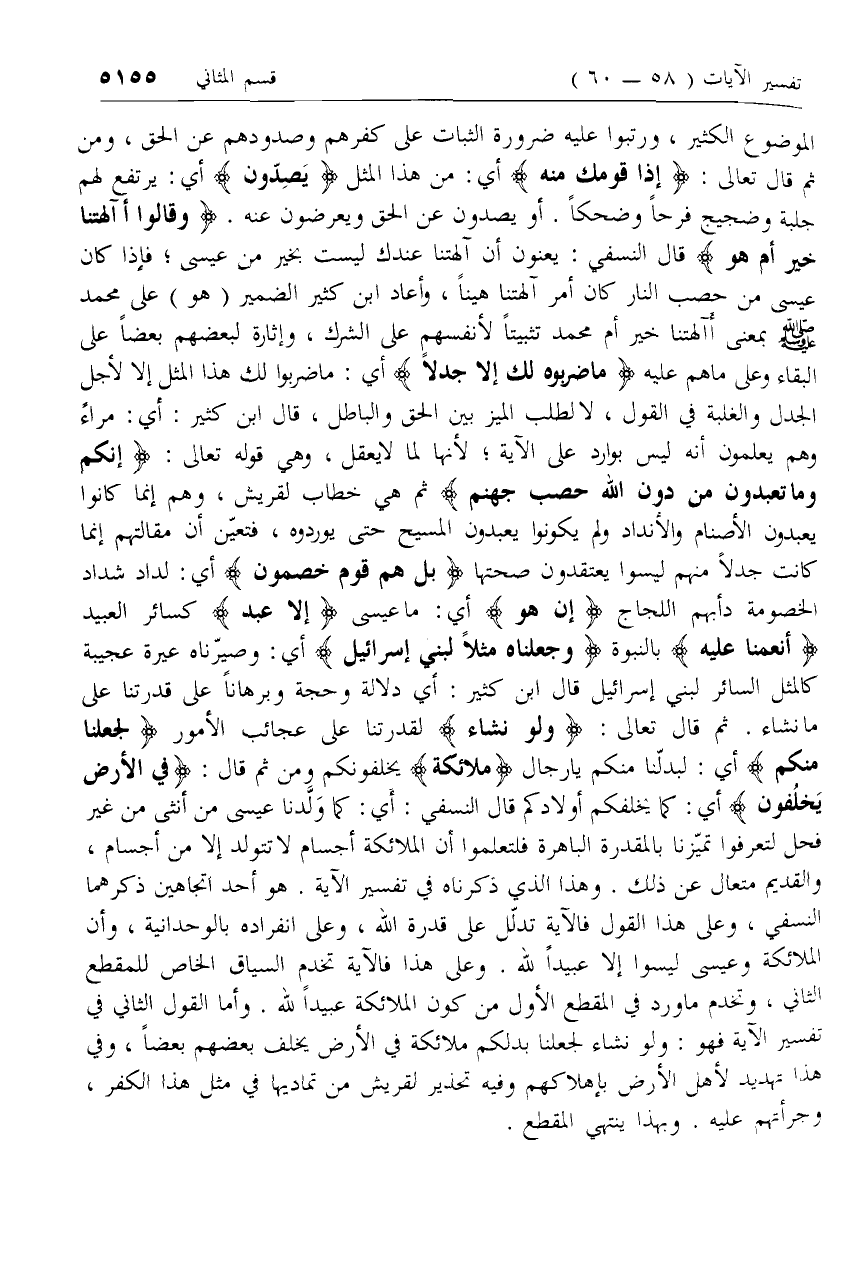 تفسير الآيات ( ٥٨ – ٦٠ ) قسم المثاني ٥١٥٥
الموضوع الكثير ، ورتبوا عليه ضرورة الثبات على كفرهم وصدودهم عن الحق ، ومن
ثم قال تعالى : ﴿ إذا قومك منه ﴾ أي : من هذا المثل ﴿ يَصِدّون ﴾ أي : يرتفع لهم
جلبة وضجيج فرحاً وضحكاً . أو يصدون عن الحق ويعرضون عنه . ﴿ وقالوا أآلهتنا
خير أم هو ﴾ قال النسفي : يعنون أن آلهتنا عندك ليست بخير من عيسى ؛ فإذا كان
عيسى من حصب النار كان أمر آلهتنا هيناً ، وأعاد ابن كثير الضمير ( هو ) على محمد
ﷺ بمعنى أآلهتنا خير أم محمد تثبيتاً لأنفسهم على الشرك ، وإثارة لبعضهم بعضاً على
البقاء وعلى ماهم عليه ﴿ ماضربوه لك إلا جدلاً ﴾ أي : ماضربوا لك هذا المثل إلا لأجل
الجدل والغلبة في القول ، لالطلب الميز بين الحق والباطل ، قال ابن كثير : أي : مراءً
وهم يعلمون أنه ليس بوارد على الآية ؛ لأنها لما لايعقل ، وهي قوله تعالى : ﴿ إنكم
وماتعبدون من دون الله حصب جهنم ﴾ ثم هي خطاب لقريش ، وهم إنما كانوا
يعبدون الأصنام والأنداد ولم يكونوا يعبدون المسيح حتى يوردوه ، فتعيّن أن مقالتهم إنما
كانت جدلاً منهم ليسوا يعتقدون صحتها ﴿ بل هم قوم خصمون ﴾ أي : لداد شداد
الخصومة دأبهم اللجاج ﴿ إن هو ﴾ أي : ماعيسى ﴿ إلا عبد ﴾ كسائر العبيد
﴿ أنعمنا عليه ﴾ بالنبوة ﴿ وجعلناه مثلاً لبني إسرائيل ﴾ أي : وصيّرناه عبرة عجيبة
كالمثل السائر لبني إسرائيل قال ابن كثير : أي دلالة وحجة وبرهاناً على قدرتنا على
مانشاء . ثم قال تعالى : ﴿ ولو نشاء ﴾ لقدرتنا على عجائب الأمور ﴿ لجعلنا
منكم ﴾ أي : لبدلّنا منكم يارجال ﴿ملائكة﴾ يخلفونكم ومن ثم قال : ﴿في الأرض
يَخلُفون ﴾ أي : كما يخلفكم أولادكم قال النسفي : أي : كما وَلَّدنا عيسى من أنثى من غير
فحل لتعرفوا تميّزنا بالمقدرة الباهرة فلتعلموا أن الملائكة أجسام لاتتولد إلا من أجسام ،
والقديم متعال عن ذلك . وهذا الذي ذكرناه في تفسير الآية . هو أحد اتجاهين ذكرهما
النسفي ، وعلى هذا القول فالآية تدلّل على قدرة الله ، وعلى انفراده بالوحدانية ، وأن
الملائكة وعيسى ليسوا إلا عبيداً لله . وعلى هذا فالآية تخدم السياق الخاص للمقطع
الثاني ، وتخدم ماورد في المقطع الأول من كون الملائكة عبيداً لله . وأما القول الثاني في
تفسير الآية فهو : ولو نشاء لجعلنا بدلكم ملائكة في الأرض يخلف بعضهم بعضاً ، وفي
هذا تهديد لأهل الأرض بإهلاكهم وفيه تحذير لقريش من تماديها في مثل هذا الكفر ،
وجرأتهم عليه . وبهذا ينتهي المقطع .